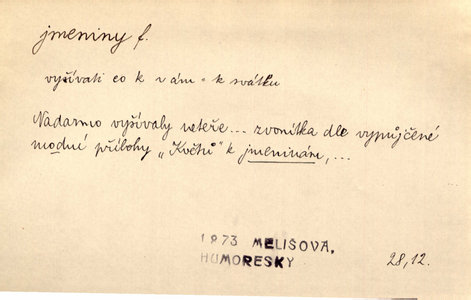 jmeniny f.
vyšívati co k v ám = k svátku
Nadarmo vyšívaly neteře... zvonítka dle vypůjčené
modní přílohy „Květů" k jmeninám, ...
1873 MELIŠOVA,
HUMORESKY
28, 12.